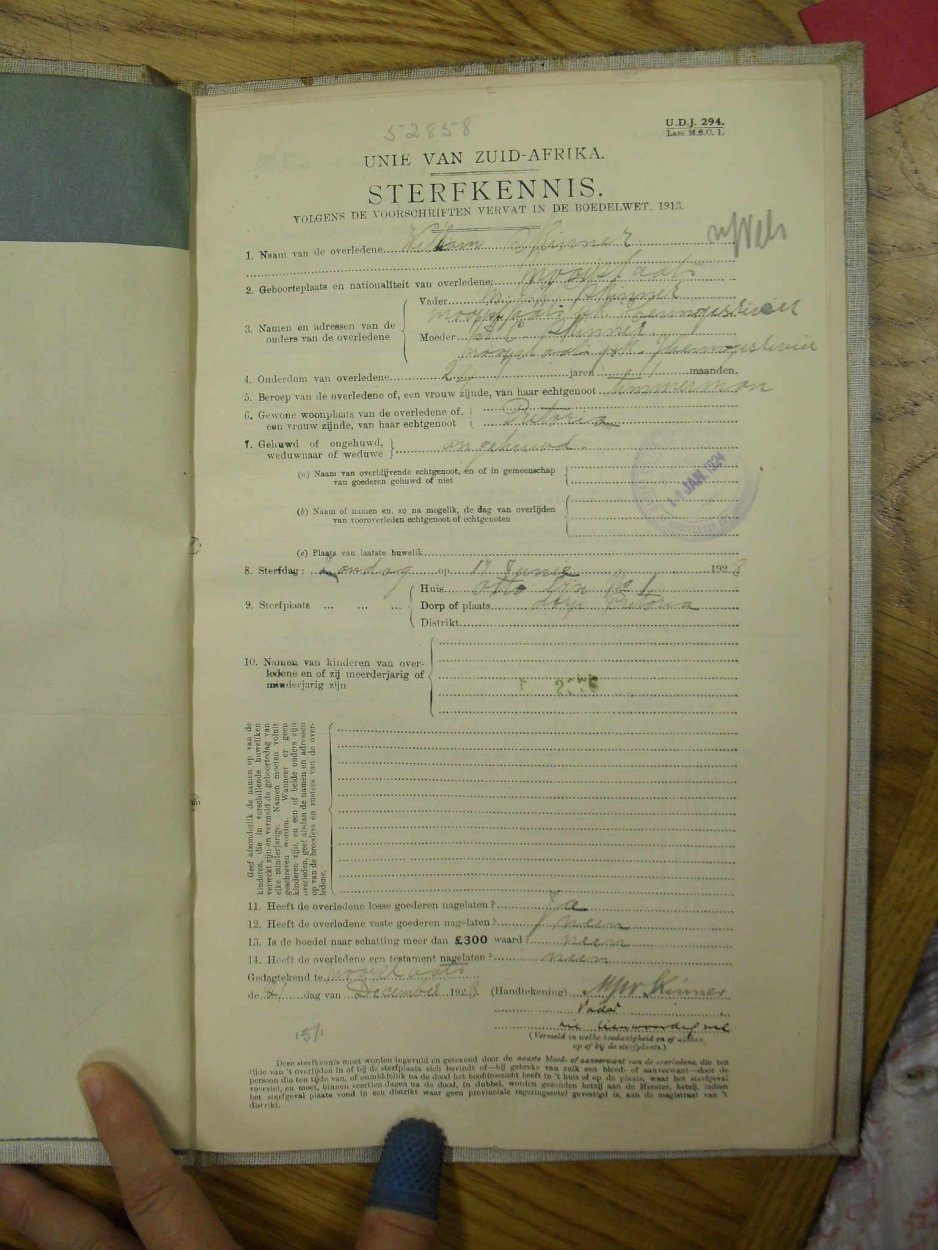 52858
U.D.J. 294.
Late M.S.C. I.
UNIE VAN ZUID-AFRIKA.
STERFKENNIS.
VOLGENS DE VOORSCHRIFTEN VERVAT IN DE BOEDELWET, 1913.
1. Naam van de overledene Willam Skinner
2. Geboorteplaats en nationaliteit van overledene
3. Namen en adressen van de ouders van de overledene
Vader Skinner
Moeder Skinner
4. Ouderdom van overledene jaren maanden.
5. Beroep van de overledene of, een vrouw zijnde, van haar echtgenoot timmerman
6. Gewone woonplaats van de overledene of, een vrouw zijnde, van haar echtgenoot Pretoria
7. Gehuwd of ongehuwd, weduwnaar of weduwe ongehuwd.
14 JAN. 1924
(a) Naam van overblijvende echtgenoot, en of in gemeenschap
van goederen gehuwd of niet
(b) Naam of namen en, so na mogelik, de dag van overlijden
van vooroverleden echtgenoot of echtgenoten
(c) Plaats van laatste huwelik
8. Sterfdag: Zondag op 17 Junie 1923
9. Sterfplaats ... ... ...
Huis No 1
Dorp of plaats dorp Pretoria
Distrikt
10. Namen van kinderen van over-
ledene en of zij meerderjarig of
minderjarig zijn
Geef afzonderlik de namen op van de
kinderen, die in verschillende huweliken
verwekt zijn en vermeld de geboortedag van
elke minderjarige. Namen moeten voluit
geschreven worden. Wanneer er geen
kinderen zijn, en een of beide ouders zijn
overleden, geef alsdan de namen en adressen
op van de broeders en zusters van de over-
ledene.
11. Heeft de overledene losse goederen nagelaten? Ja
12. Heeft de overledene vaste goederen nagelaten? neen
13. Is de boedel naar schatting meer dan £300 waard? neen
14. Heeft de overledene een testament nagelaten? neen
Gedagtekend te
de 21 dag van December 1923 (Handtekening) Skinner
Vader
(Vermeld in welke hoedanigheid en of aanwezig
op of bij de sterfplaats.)
15/1
Deze sterfkennis moet worden ingevuld en getekend door de naaste bloed- of aanverwant van de overledene, die ten
tijde van 't overlijden in of bij de sterfplaats zich bevindt of—bij gebreke van zulk een bloed- of aanverwant—door de
persoon die ten tijde van, of onmiddellik na de dood het hoofdtoezicht heeft in 't huis of op de plaats, waar het sterfgeval
voorviel, en moet, binnen veertien dagen na de dood, in dubbel, worden gezonden hetzij aan de Meester, hetzij, indien
het sterfgeval plaats vond in een distrikt waar geen provinciale regeringszetel gevestigd is, aan de magistraat van 't
distrikt.